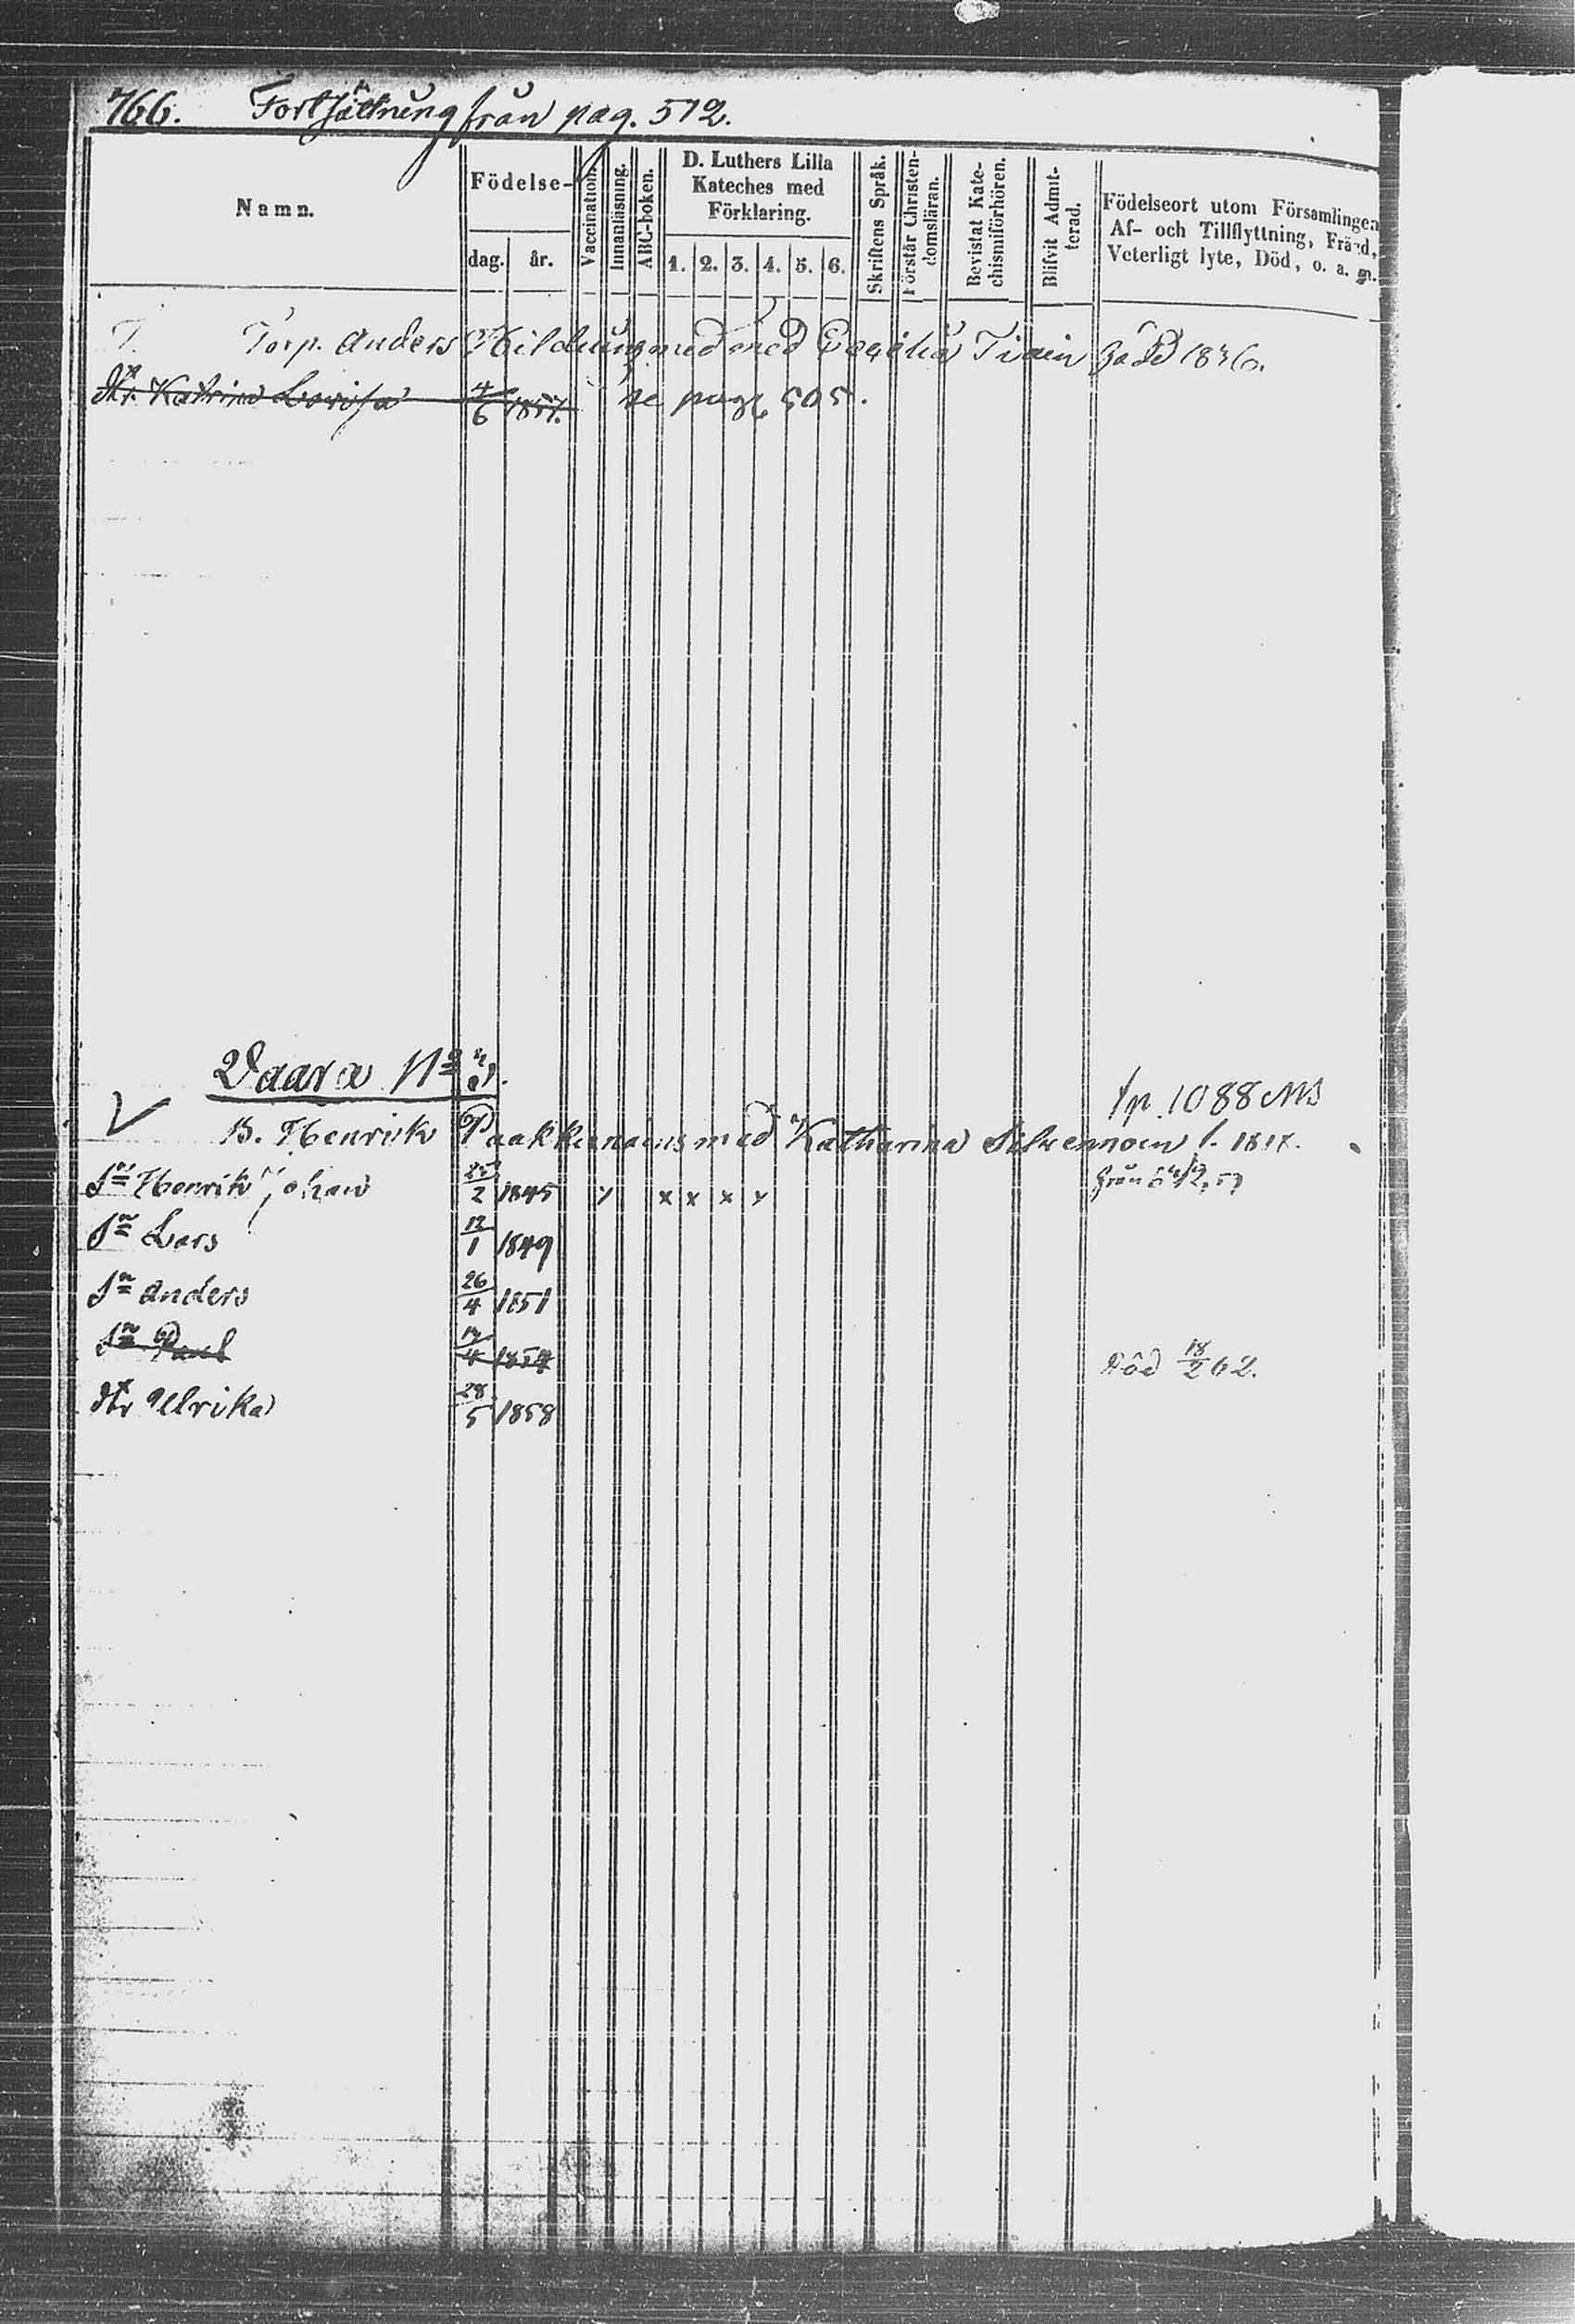 766. Fortsättning från pag. 512.
Namn.
Födelse-
dag. år.
Vaccination.
Innanläsning.
ABC-boken.
D. Luthers Lilla
Kateches med
Förklaring.
1. 2. 3. 4. 5. 6.
Skriftens Språk.
Förstår Christen-
domsläran.
Bevistat Kate-
chismiförhören.
Blifvit Admit-
terad.
Födelseort utom Församlingen
Af- och Tillflyttning, Fräjd,
Veterligt lyte, Död, o. a. m.
T. Torp. Anders med 1836.
dtr. Katrina Lovisa 4/6 1857. se pag. 505.
Vaara No
fp. 1088 NB
B. Henrik Paakkunains med Katharina
Sn Henrik Johan 25/2 1845 x x x x från
Sn Lars 12/1 1849
Sn Anders 26/4 1851
Sn Paul 4 1854 Död 18/2 62.
dtr Ulrika 28/5 1858